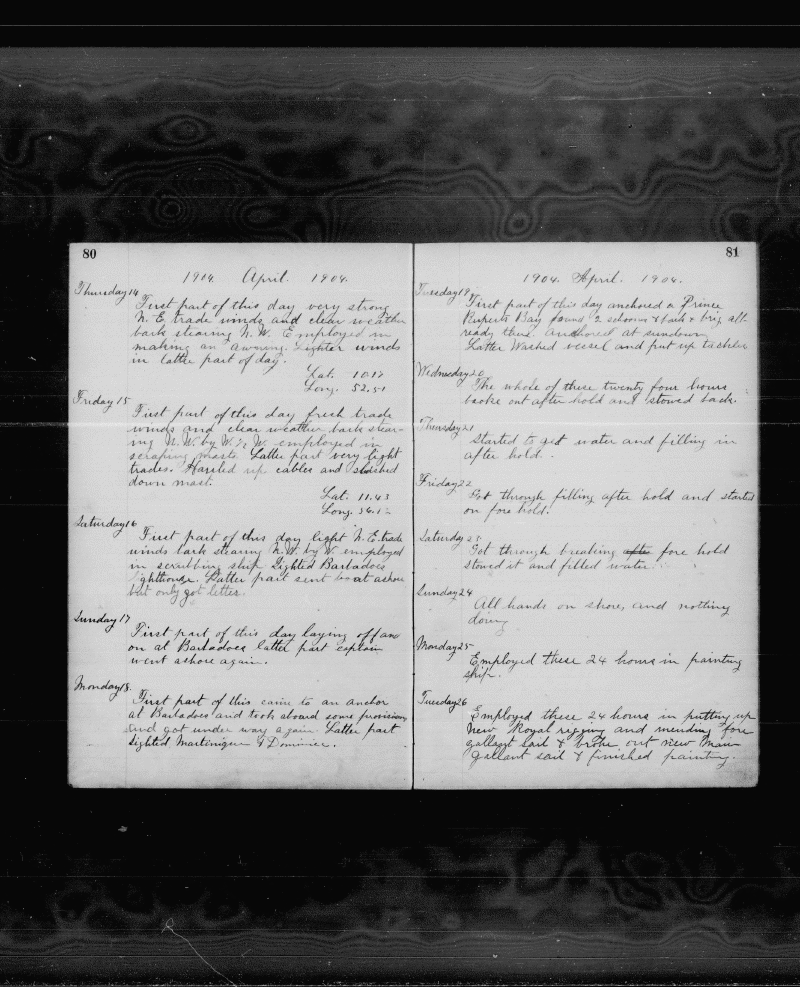 80
1904. April. 1904.
Thursday 14
First part of this day very strong
N.E. trade winds and clear weather
bark stearing N.W. Employed in
making an awning. Lighter winds
in latter part of day.
Lat. 10.17
Long. 52.51
Friday 15
First part of this day fresh trade
winds and clear weather bark stear-
ing N.W. by W. ½ W. employed in
scraping masts. Latter part very light
trades. Hauled up cables and slushed
down mast.
Lat. 11.43
Long.
Saturday 16
First part of this day light N.E. trade
winds bark stearing N.W. by W. employed
in scrubbing ship. Sighted Barbadoes
lighthouse. Latter part sent boat ashore
but only got letter.
Sunday 17
First part of this day laying off and
on at Barbadoes latter part captain
went ashore again.
Monday 18.
First part of this came to an anchor
at Barbadoes and took aboard some provisions
and got under way again. Latter part
sighted Martinique & Dominica.
81
1904. April. 1904.
Tuesday 19
First part of this day anchored in Prince
Ruperts Bay found 2 schooners & bark & brig all
ready there. Anchored at sundown
Latter Washed vessel and put up tackles
Wednesday 20
The whole of these twenty four hours
broke out after hold and stowed back.
Thursday 21
Started to get water and filling in
after hold.
Friday 22
Got through filling after hold and started
on fore hold.
Saturday 23
Got through breaking after fore hold
stowed it and filled water.
Sunday 24
All hands on shore, and nothing
doing
Monday 25
Employed these 24 hours in painting
ship.
Tuesday 26
Employed these 24 hours in putting up
New Royal rigging and mending fore
gallant sail & broke out new Main
Gallant sail & finished painting.